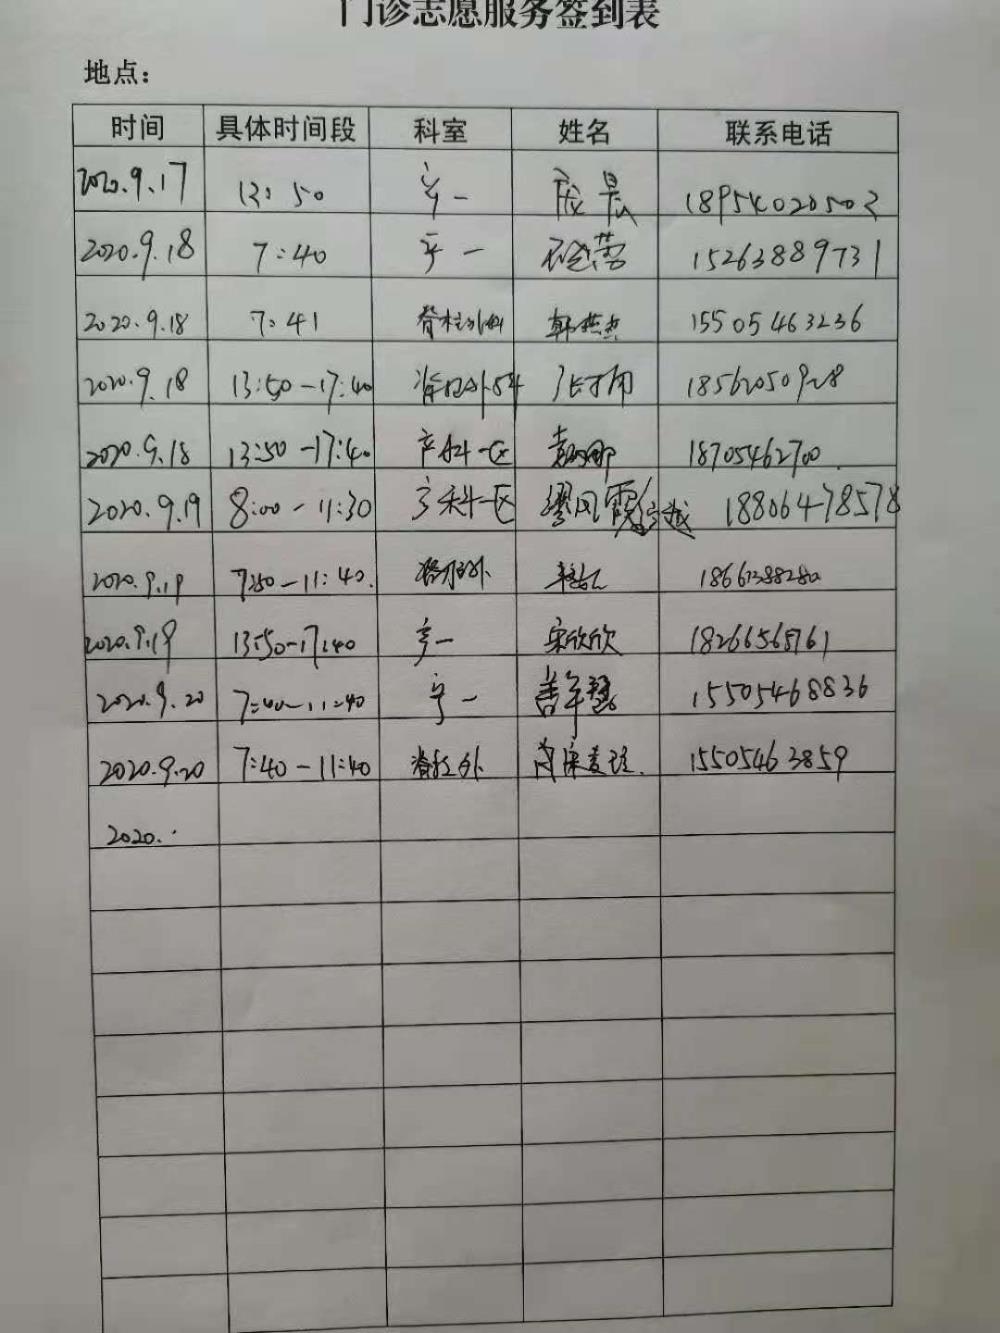 门诊志愿服务签到表
地点：
时间 具体时间段 科室 姓名 联系电话
2020.9.17 13:50 产一 晨 18954020503
2020.9.18 7:40 产一 15263889731
2020.9.18 7:41 脊柱外科 韩燕燕 15505463236
2020.9.18 13:50-17:40 脊柱外科 18562050928
2020.9.18 13:50-17:40 产科一区 袁娜娜 18705462700
2020.9.19 8:00-11:30 产科一区 缪凤霞 18806478578
2020.9.19 7:50-11:40. 脊柱外
2020.9.19 13:50-17:40 产一 宋欣欣 18266565761
2020.9.20 7:40-11:40 产一 15505468836
2020.9.20 7:40-11:40 脊柱外 15505463859
2020.